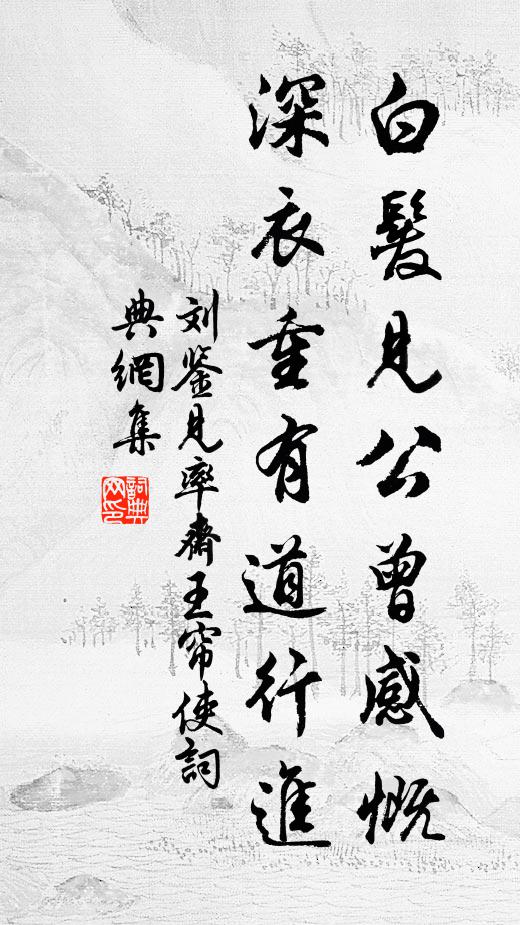 白髮見公曾感慨
深衣重有道行進
刘鉴見率齋王帘使詞
典網集
詞典網印